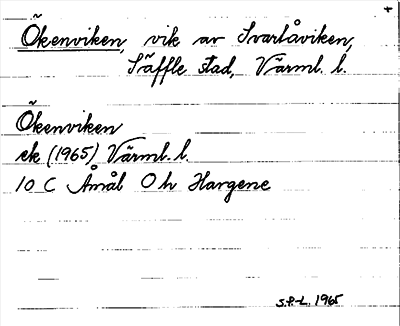 Ökenviken, vik av Svartåviken,
Säffle stad, Värml. l.
Ökenviken
ek (1965) Värml. l.
10 C Åmål Oh Hargene
S.P-L. 1965